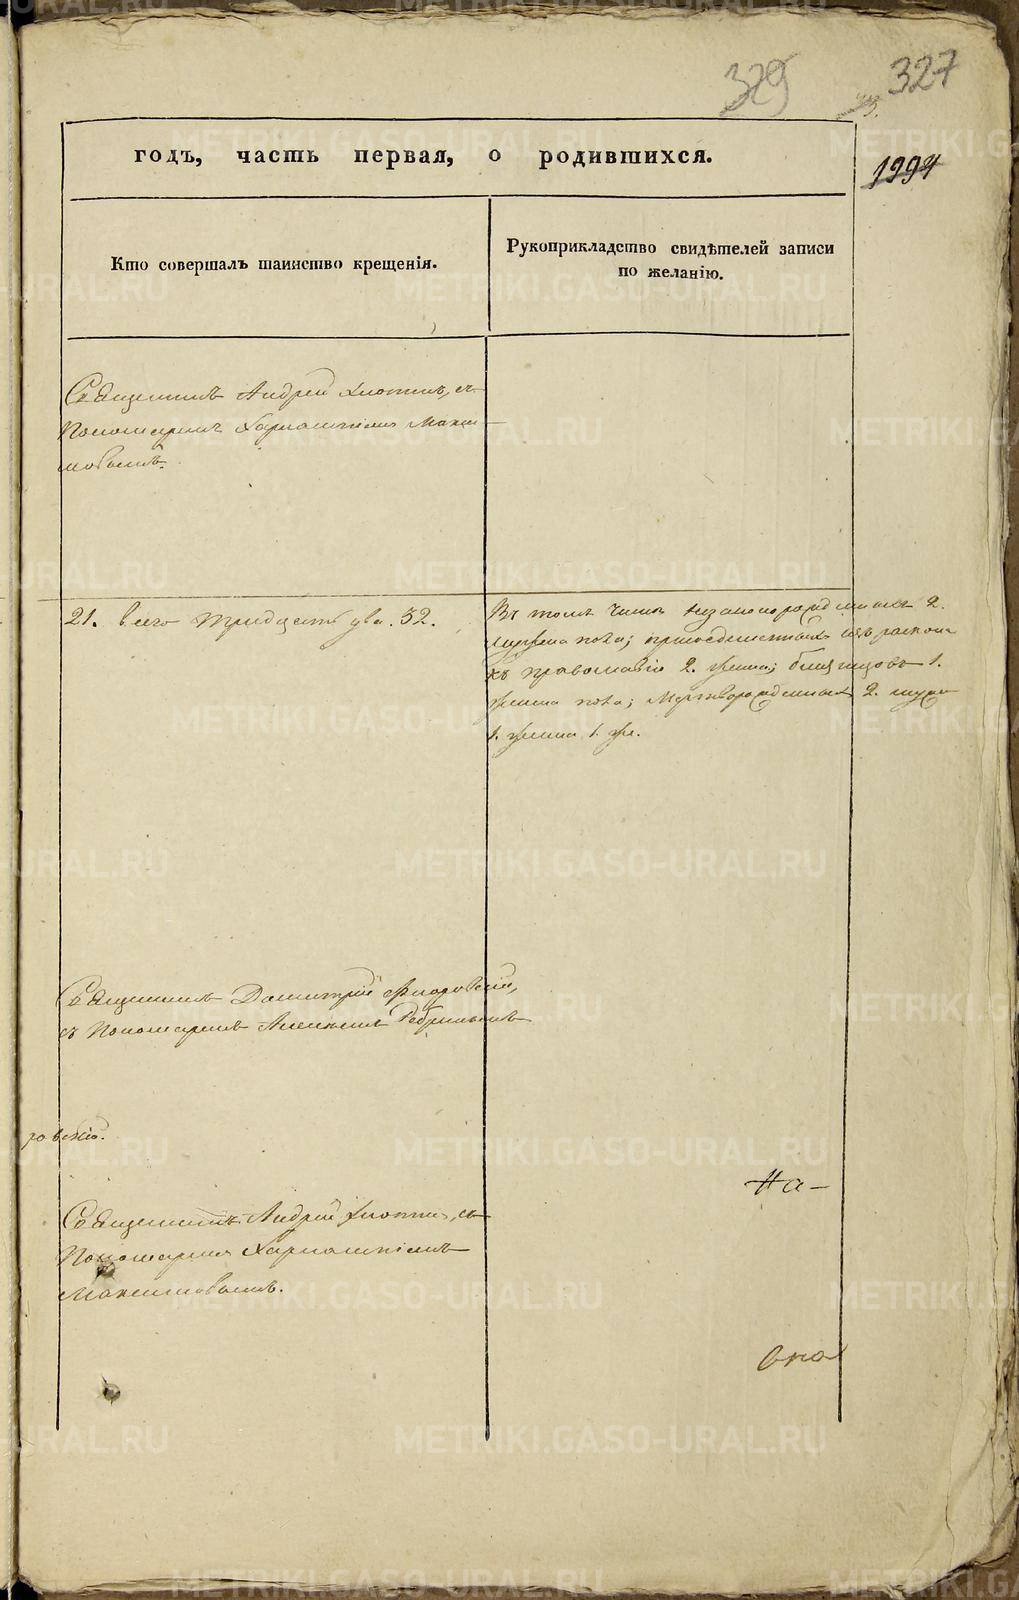 329
327
годъ, часть первая, о родившихся.
1994
Кто совершалъ таинство крещенія.
Рукоприкладство свидѣтелей записи
по желанію.
Священникъ Андрей съ
Пономаремъ Максі-
мовымъ.
21. всего тридцать два. 32.
Въ томъ числѣ незаконорожденныхъ 2.
мужеска пола; присоединенныхъ изъ раскола
къ православію 2. женска; близнецовъ 1.
женска пола; мертворожденныхъ 2. мужес
1. женска 1. же.
Священникъ Димитрій Флоровскій,
съ Пономаремъ
ровскій.
На-
Священникъ Андрей съ
Пономаремъ
Максимовымъ.
METRIKI.GASO-URAL.RU